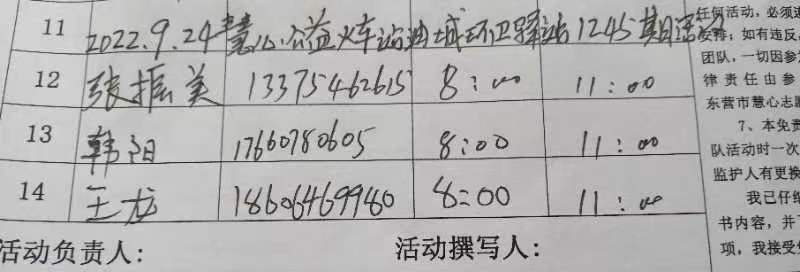 11 2022.9.24慧心公益火车站油城环卫驿站1245期活动
12 张振美 13375462615 8:00 11:00
13 韩阳 17660780605 8:00 11:00
14 王龙 18606469980 8:00 11:00
活动负责人: 活动撰写人:
任何活动，必须
安排；如有违反
团队，一切因参
律责任由参
东营市慧心志
7、本免责
队活动时一次
监护人有更换
我已仔细
书内容，并
项，我接受